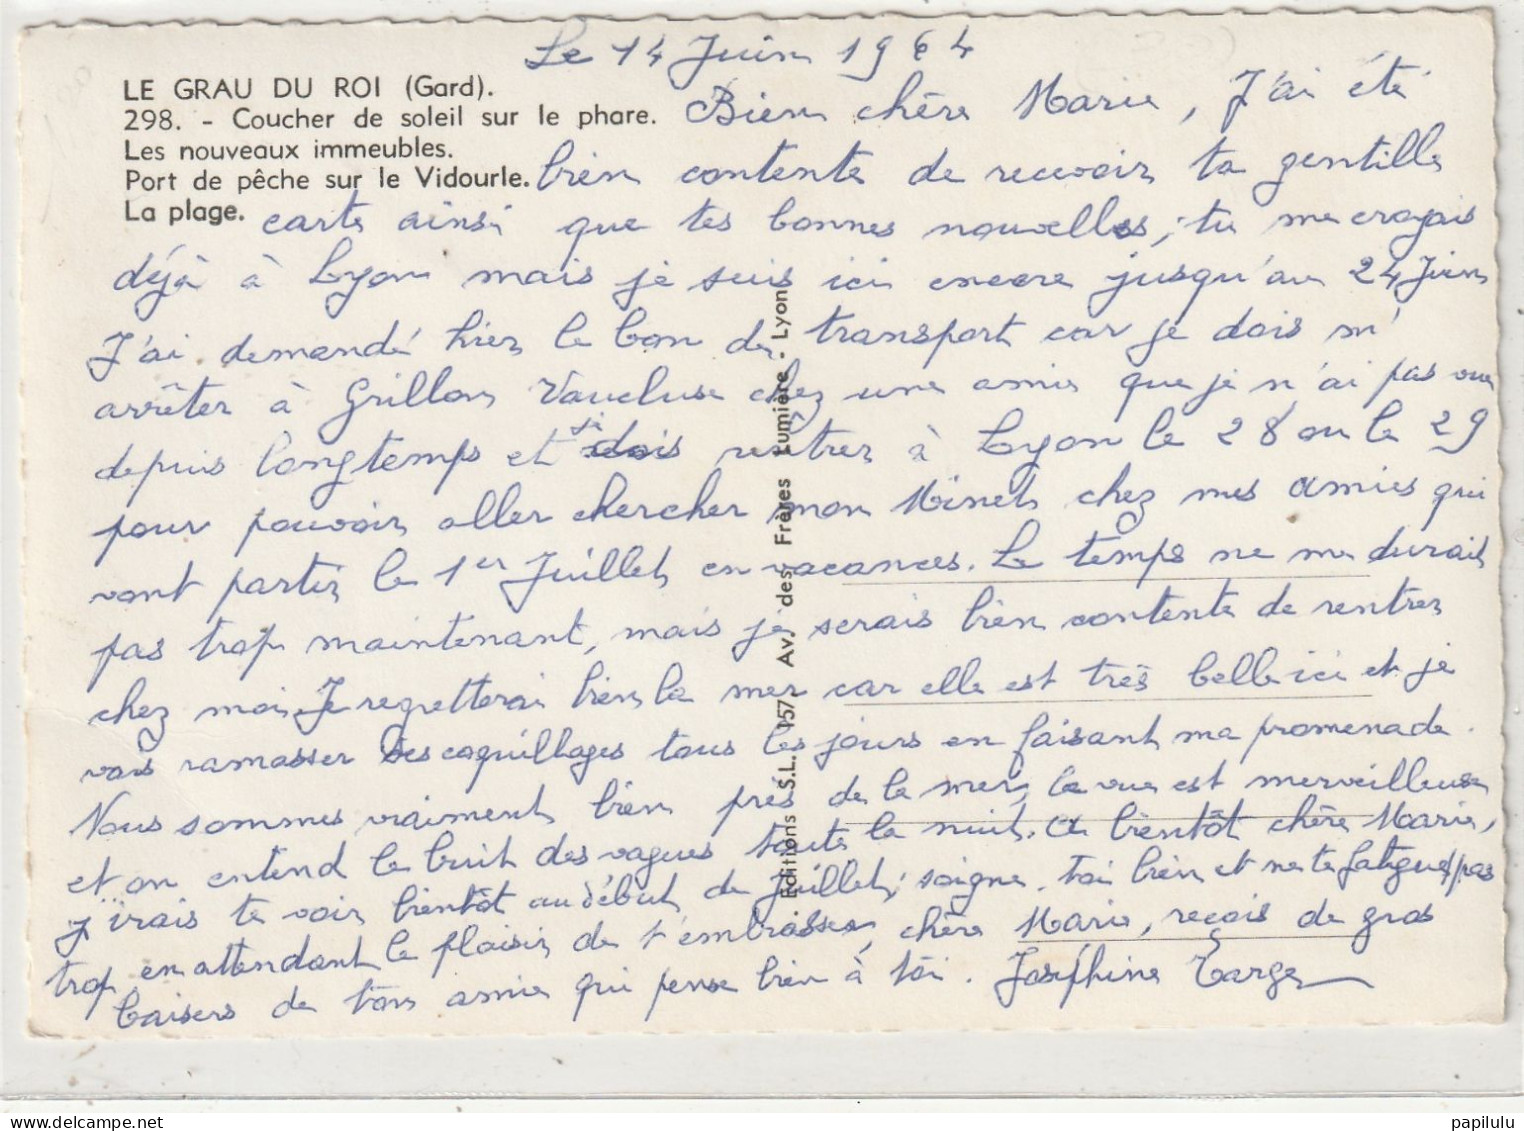 Le 14 Juin 1964
LE GRAU DU ROI (Gard).
298. - Coucher de soleil sur le phare.
Les nouveaux immeubles.
Port de pêche sur le Vidourle.
La plage.
Bien chère Marie, J'ai été
bien contente de recevoir ta gentille
carte ainsi que tes bonnes nouvelles, tu me croyais
déjà à Lyon mais je suis ici encore jusqu'au 24 Juin
J'ai demandé hier le bon de transport car je dois m'
arrêter à Grillon Vaucluse chez une amie que je n'ai pas vue
depuis longtemps et je dois rentrer à Lyon le 28 ou le 29
pour pouvoir aller chercher mon Minet chez mes amies qui
vont partir le 1er Juillet en vacances. Le temps ne me durait
pas trop maintenant, mais je serais bien contente de rentrer
chez moi. Je regretterai bien la mer car elle est très belle ici et je
vais ramasser des coquillages tous les jours en faisant ma promenade.
Nous sommes vraiment bien près de la mer, la vue est merveilleuse
et on entend le bruit des vagues toute la nuit. A bientôt chère Marie,
j'irais te voir bientôt au début de Juillet; soigne-toi bien et ne te fatigues pas
trop en attendant le plaisir de t'embrasser, chère Marie, reçois de gros
baisers de ton amie qui pense bien à toi. Joséphine Targe
Editions S.L. 157, Av. des Frères Lumière - Lyon
papilulu